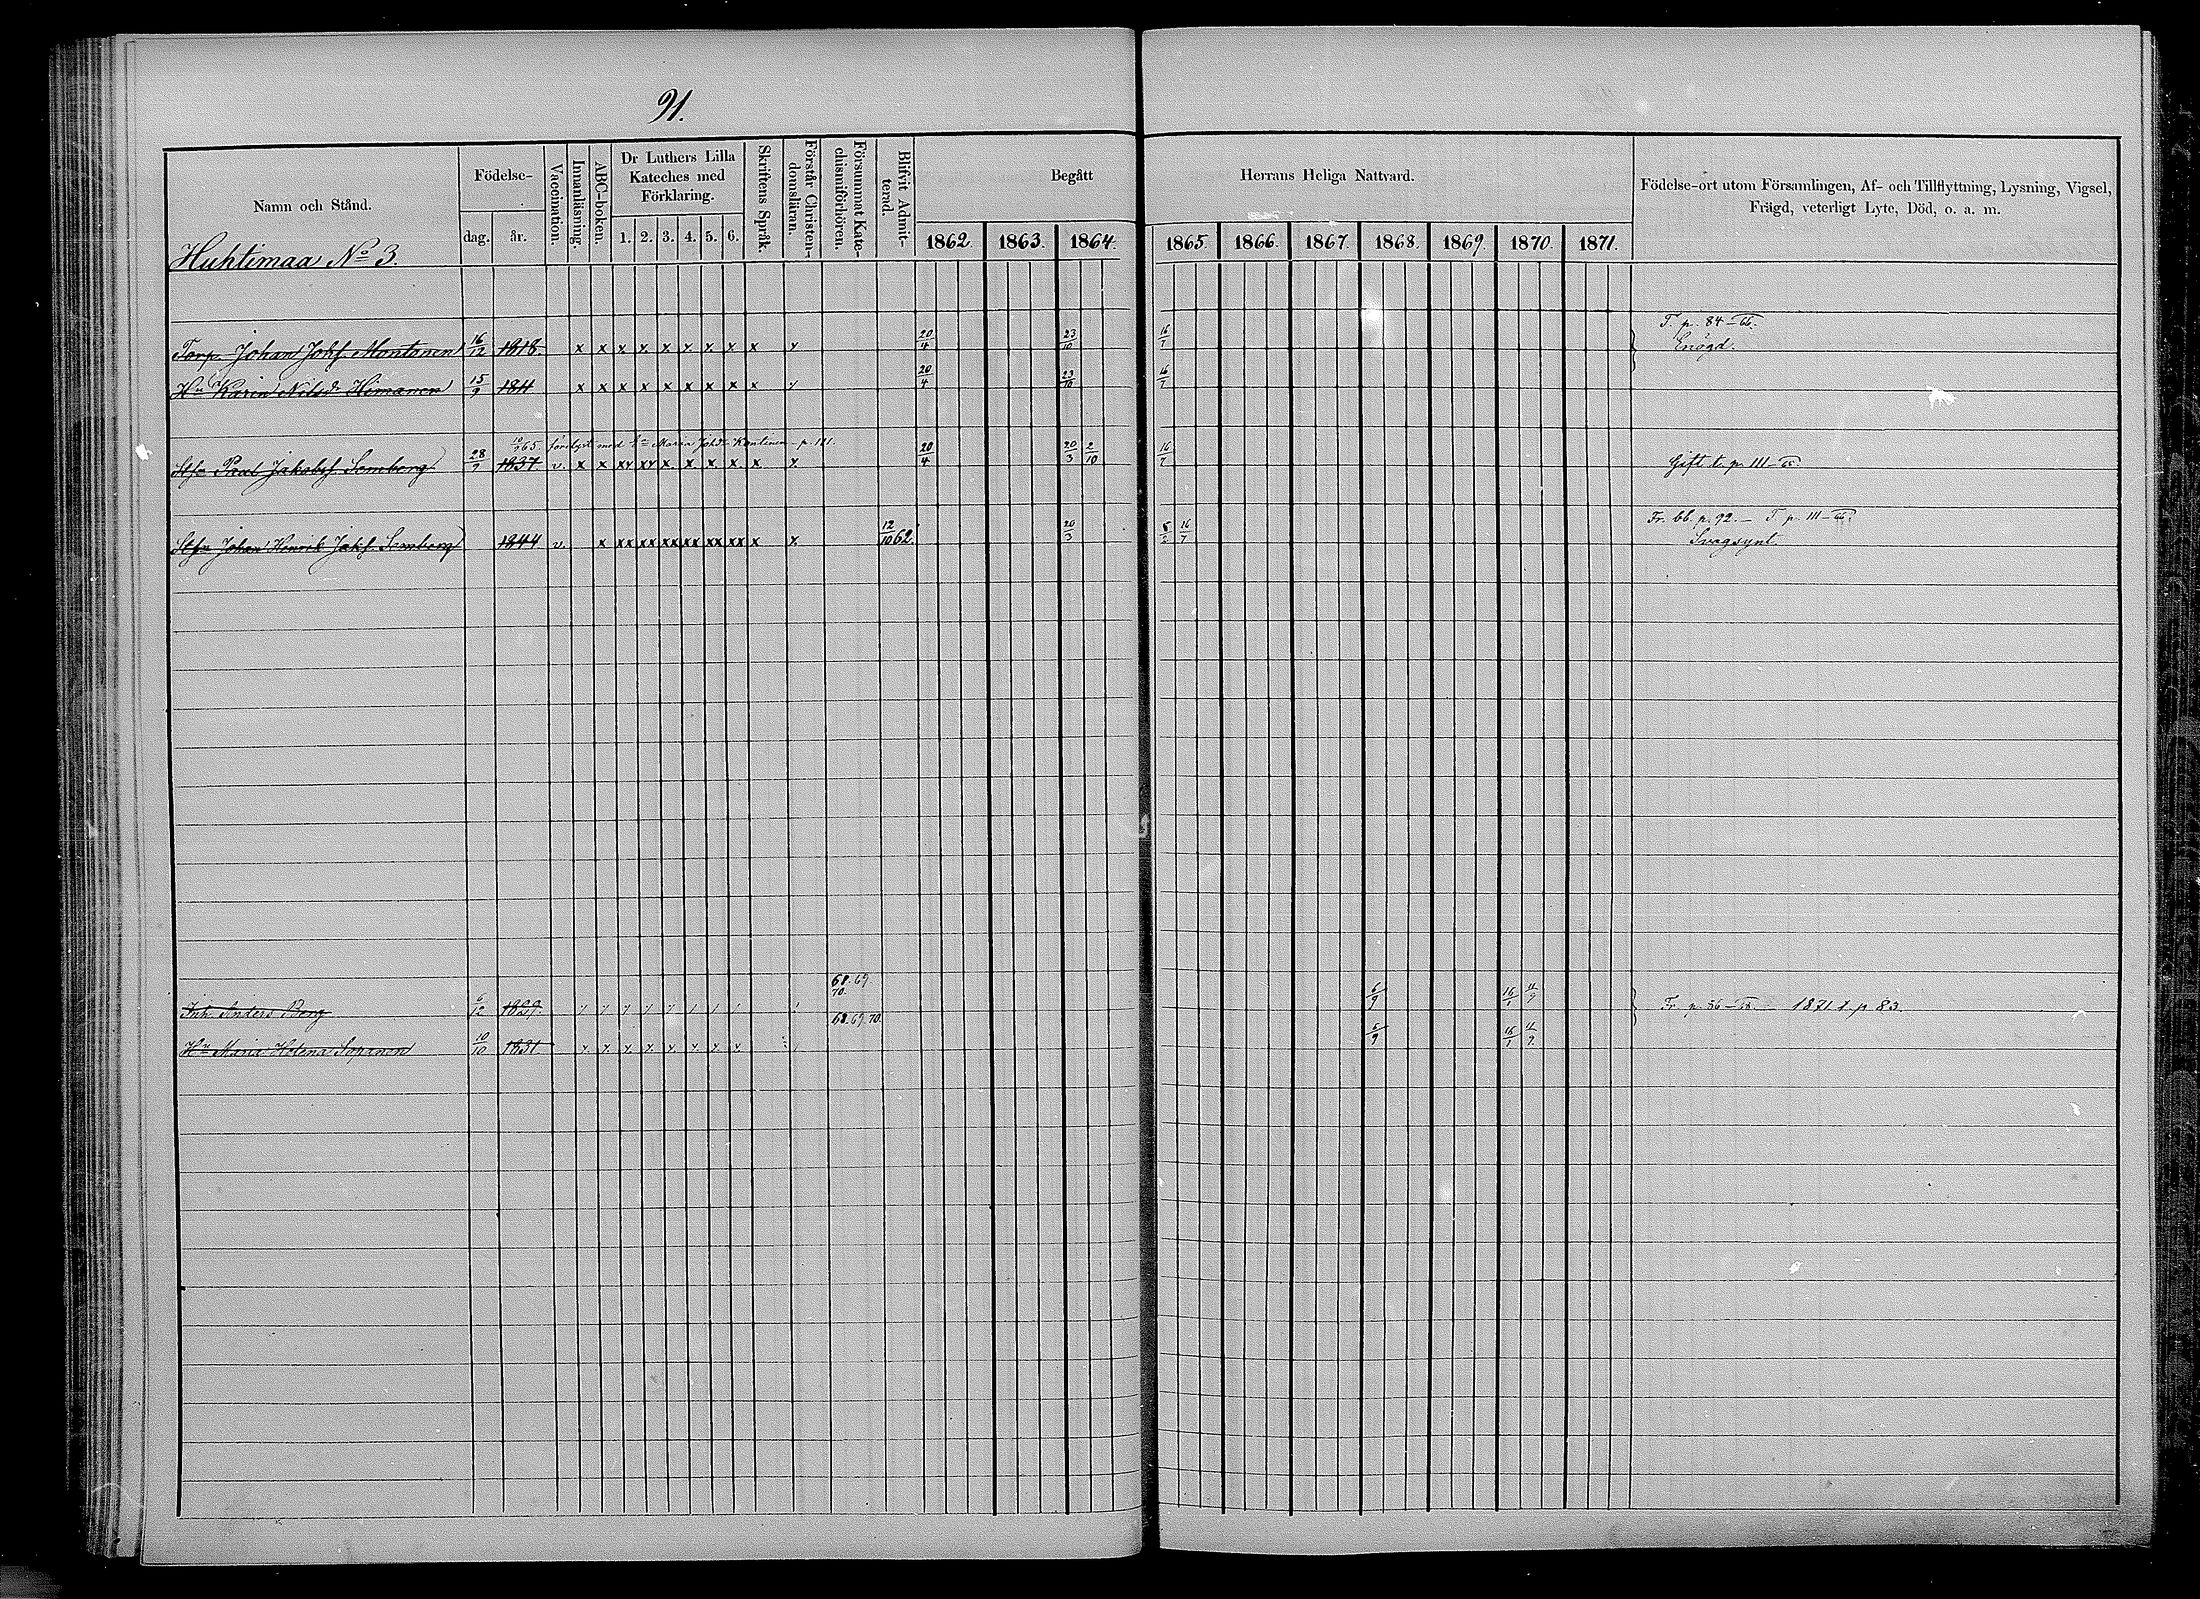 91.
Namn och Stånd.
Födelse-
dag.
år.
Vaccination.
Innanläsning.
ABC-boken.
Dr Luthers Lilla
Kateches med
Förklaring.
1. 2. 3. 4. 5. 6.
Skriftens Språk.
Förstår Christen-
domsläran.
Försummat Kate-
chismiförhören.
Blifvit Admit-
terad.
Begått
Herrans Heliga Nattvard.
1862. 1863. 1864. 1865. 1866. 1867. 1868. 1869. 1870. 1871.
Födelse-ort utom Församlingen, Af- och Tillflyttning, Lysning, Vigsel,
Frägd, veterligt Lyte, Död, o. a. m.
Huhtimaa No 3.
T. p. 84-66.
Torp. Johan Johs. Montonen 16/12 1818. x x x x x x x x x x 20/4 23/10 16/7 Enögd.
Hu Karin Nilsdr Himanen 15/9 x x x x x x x x x x 20/4 23/10 16/7
65 förlyst med Maria Johdr Kontinen - p. 111.
28/9 1837 v. x x xx xx x x x x x x 20/4 20/3 2/10 16/7 Gift t. p. 111-65
Fr. bb. p. 92. - T. p. 111-66.
Johan Henrik Jaks. Semberg 1844 v. x xx xx xx xx xx xx x x 12/10 62. 20/3 5/2 16/7 Svagsynt.
68. 69.
70.
Inh. Anders Berg 6/12 1829. 6/9 16/1 11/9 Fr. p. 86-68. - 1871 t. p. 83.
68. 69. 70.
Hu Maria Helena Soranen 10/10 1831 x x x x x x x x 6/9 16/1 11/9